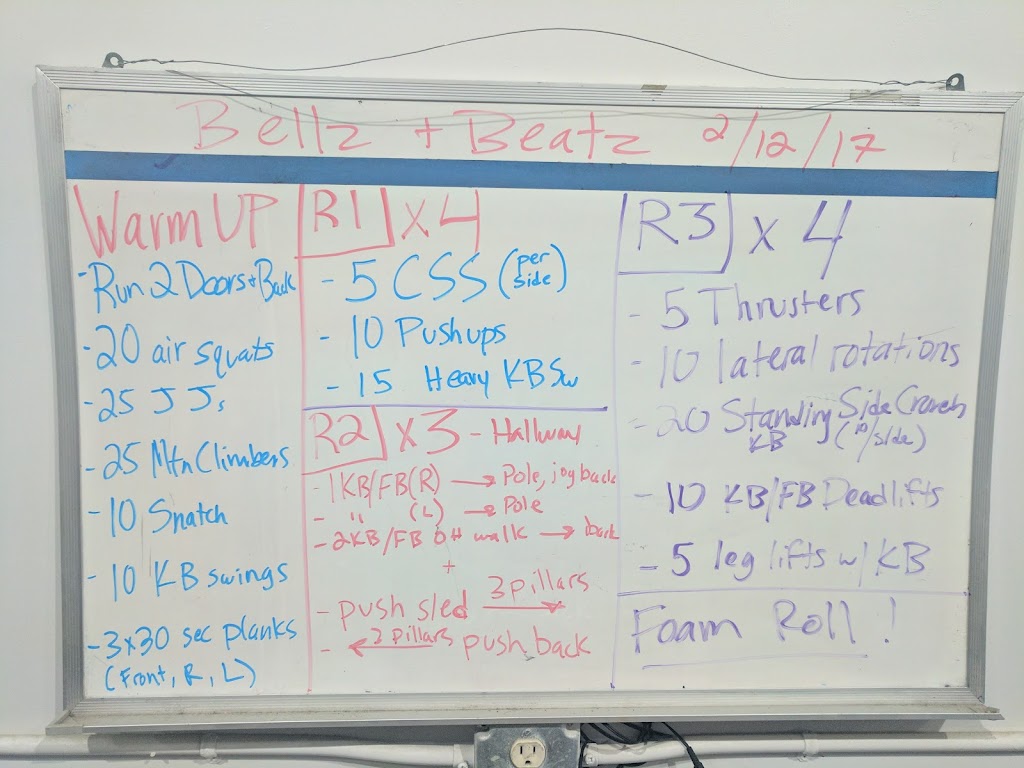 Bellz + Beatz 2/12/17
Warm UP
- Run 2 Doors + Back
- 20 air squats
- 25 J Js
- 25 Mtn Climbers
- 10 Snatch
- 10 KB swings
- 3x30 sec planks
(Front, R, L)
R1 x 4
- 5 CSS (per side)
- 10 Pushups
- 15 Heavy KB Sw
R2 x 3 - Hallway
- 1 KB/FB (R) → Pole, jog back
- " (L) → Pole
- 2KB/FB OH walk → back
+
- push sled 3 pillars →
- ← 2 pillars push back
R3 x 4
- 5 Thrusters
- 10 lateral rotations
- 20 Standing Side Crunch
KB (10/side)
- 10 KB/FB Deadlifts
- 5 leg lifts w/ KB
Foam Roll!